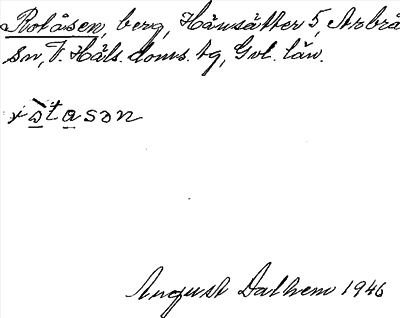 Rotåsen, berg, Hänsätter 5, Arbrå
sn, V. Häls. doms. tg, Gvl. län.
ròtasən
August Dalhem 1946